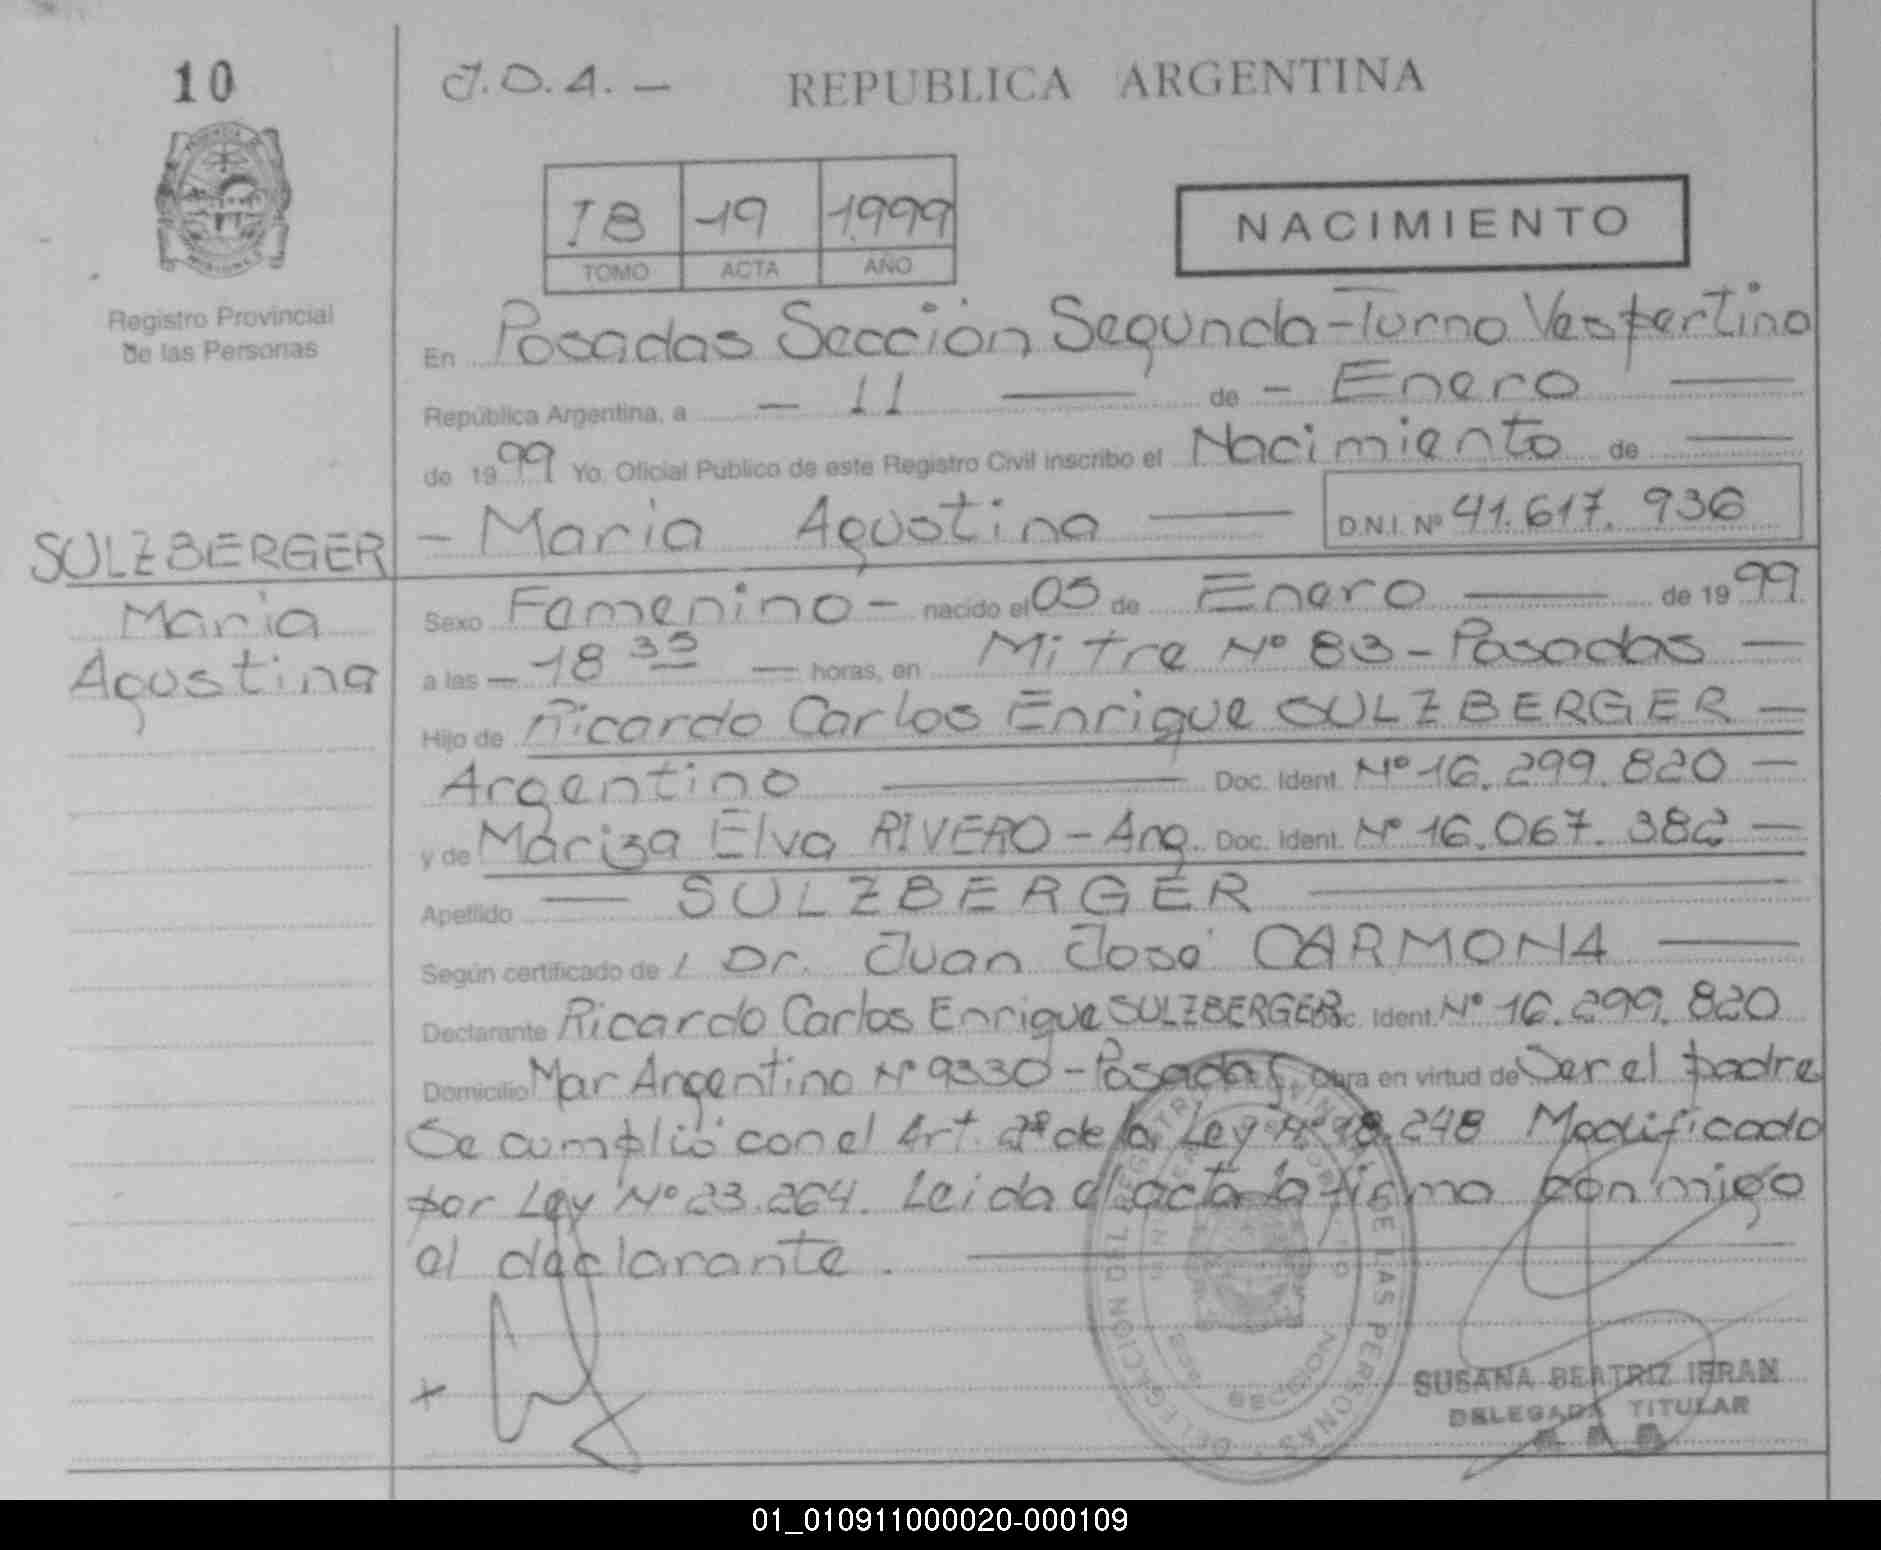 10
J.O.A. —
REPUBLICA ARGENTINA
I8 19 1.999
TOMO ACTA AÑO
NACIMIENTO
Registro Provincial
de las Personas
En Posadas Sección Segunda - Turno Vespertino
República Argentina, a — 11 — de - Enero —
de 1999 Yo, Oficial Público de este Registro Civil inscribo el Nacimiento de —
- Maria Agustina — D.N.I. Nº 41.617.936
SULZBERGER
Maria
Agustina
Sexo Femenino - nacido el 05 de Enero — de 1999
a las - 18 35 — horas, en Mitre Nº 83 - Posadas —
Hijo de Ricardo Carlos Enrique SULZBERGER —
Argentino — Doc. Ident. Nº 16.299.820 —
y de Mariza Elva RIVERO - Arg. Doc. Ident. Nº 16.067.382 —
Apellido — SULZBERGER —
Según certificado de / Dr. Juan José CARMONA —
Declarante Ricardo Carlos Enrique SULZBERGER Doc. Ident. Nº 16.299.820
Domicilio Mar Argentino Nº 9330 - Posadas Obra en virtud de Ser el padre
Se cumplió con el Art. 2º de la Ley Nº 18.248 Modificado
por Ley Nº 23.264. Leida el acta la firma conmigo
el declarante. —
DE LAS PERSONAS
DELEGACION
MISIONES
SUSANA BEATRIZ IRRAN
DELEGADA TITULAR
01_010911000020-000109